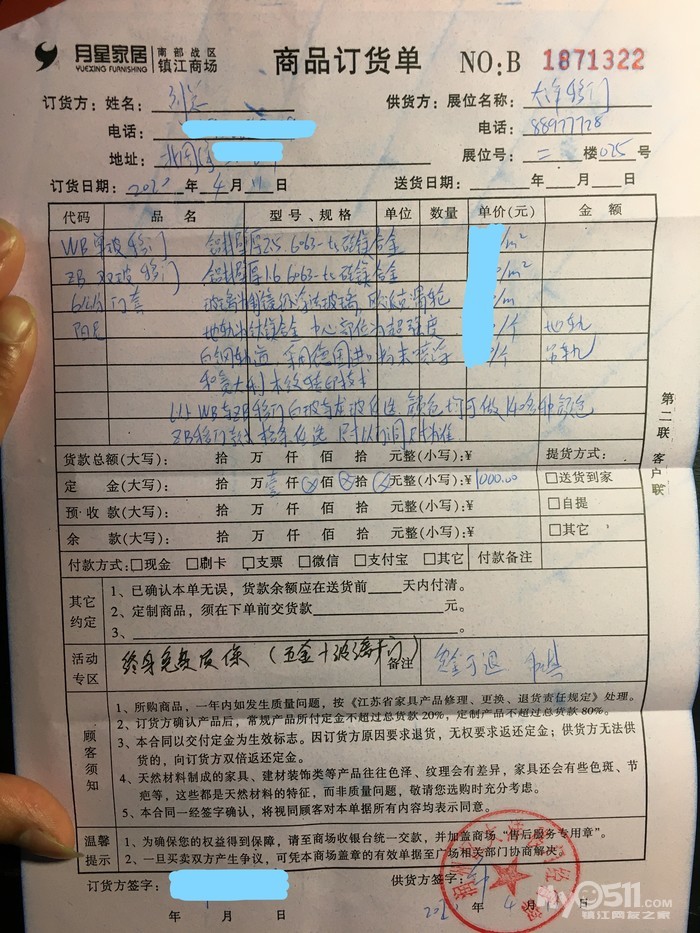 月星家居 南部战区
YUEXING FURNISHING 镇江商场
商品订货单 NO:B 1871322
订货方：姓名： 供货方：展位名称：大 移门
电话： 电话：88977728
地址： 展位号：二 楼025号
订货日期： 年 4 月 11 日 送货日期： 年 月 日
代码 品 名 型 号、规 格 单位 数量 单价(元) 金 额
WB 单玻移门 铝材厚2.5 6063-t5 钛镁合金 /m²
ZB 双玻移门 铝材厚1.6 6063-t5 钛镁合金 /m²
门套 玻璃 玻璃， 滑轮 /m
地轨 钛镁合金 中心 超强度 /个 地轨
轨道 采用德国进口粉末喷涂 /个 吊轨
和意大利木纹转印技术
WB与ZB移门白玻 玻 选 颜色 可做140多种颜色
ZB移门款 格条任选 尺 门洞尺 准
货款总额(大写)： 拾 万 仟 佰 拾 元整(小写)：¥ 提货方式：
定 金(大写)： 拾 万 壹 仟 佰 拾 元整(小写)：¥ 1000.00 □送货到家
预 收 款(大写)： 拾 万 仟 佰 拾 元整(小写)：¥ □自提
余 款(大写)： 拾 万 仟 佰 拾 元整(小写)：¥ □其它
付款方式：□现金 □刷卡 □支票 □微信 □支付宝 □其它 付款备注
其它约定
1、已确认本单无误，货款余额应在送货前 天内付清。
2、定制商品，须在下单前交货款 元。
3、 。
活动专区 终身免费质保（五金+玻璃 门） 备注 定金可退
顾客须知
1、所购商品，一年内如发生质量问题，按《江苏省家具产品修理、更换、退货责任规定》处理。
2、订货方确认产品后，常规产品所付定金不超过总货款20%，定制产品不超过总货款80%。
3、本合同以交付定金为生效标志。因订货方原因要求退货，无权要求返还定金；供货方无法供
货的，向订货方双倍返还定金。
4、天然材料制成的家具、建材装饰类等产品往往色泽、纹理会有差异，家具还会有些色斑、节
疤等，这些都是天然材料的特征，而非质量问题，敬请您选购时充分考虑。
5、本合同一经签字确认，将视同顾客对本单据所有内容均表示同意。
温馨提示
1、为确保您的权益得到保障，请至商场收银台统一交款，并加盖商场“售后服务专用章”。
2、一旦买卖双方产生争议，可凭本商场盖章的有效单据至广场相关部门协商解决。
订货方签字： 供货方签字：
年 月 日 年 4 月 日
第二联 客户联
my0511.com
镇江网友之家